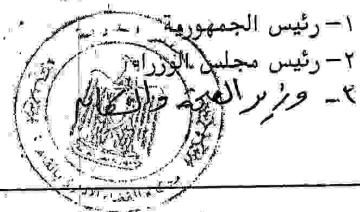 ١- رئيس الجمهورية
٢- رئيس مجلس الوزراء
٣- وزير الصحة والسكان